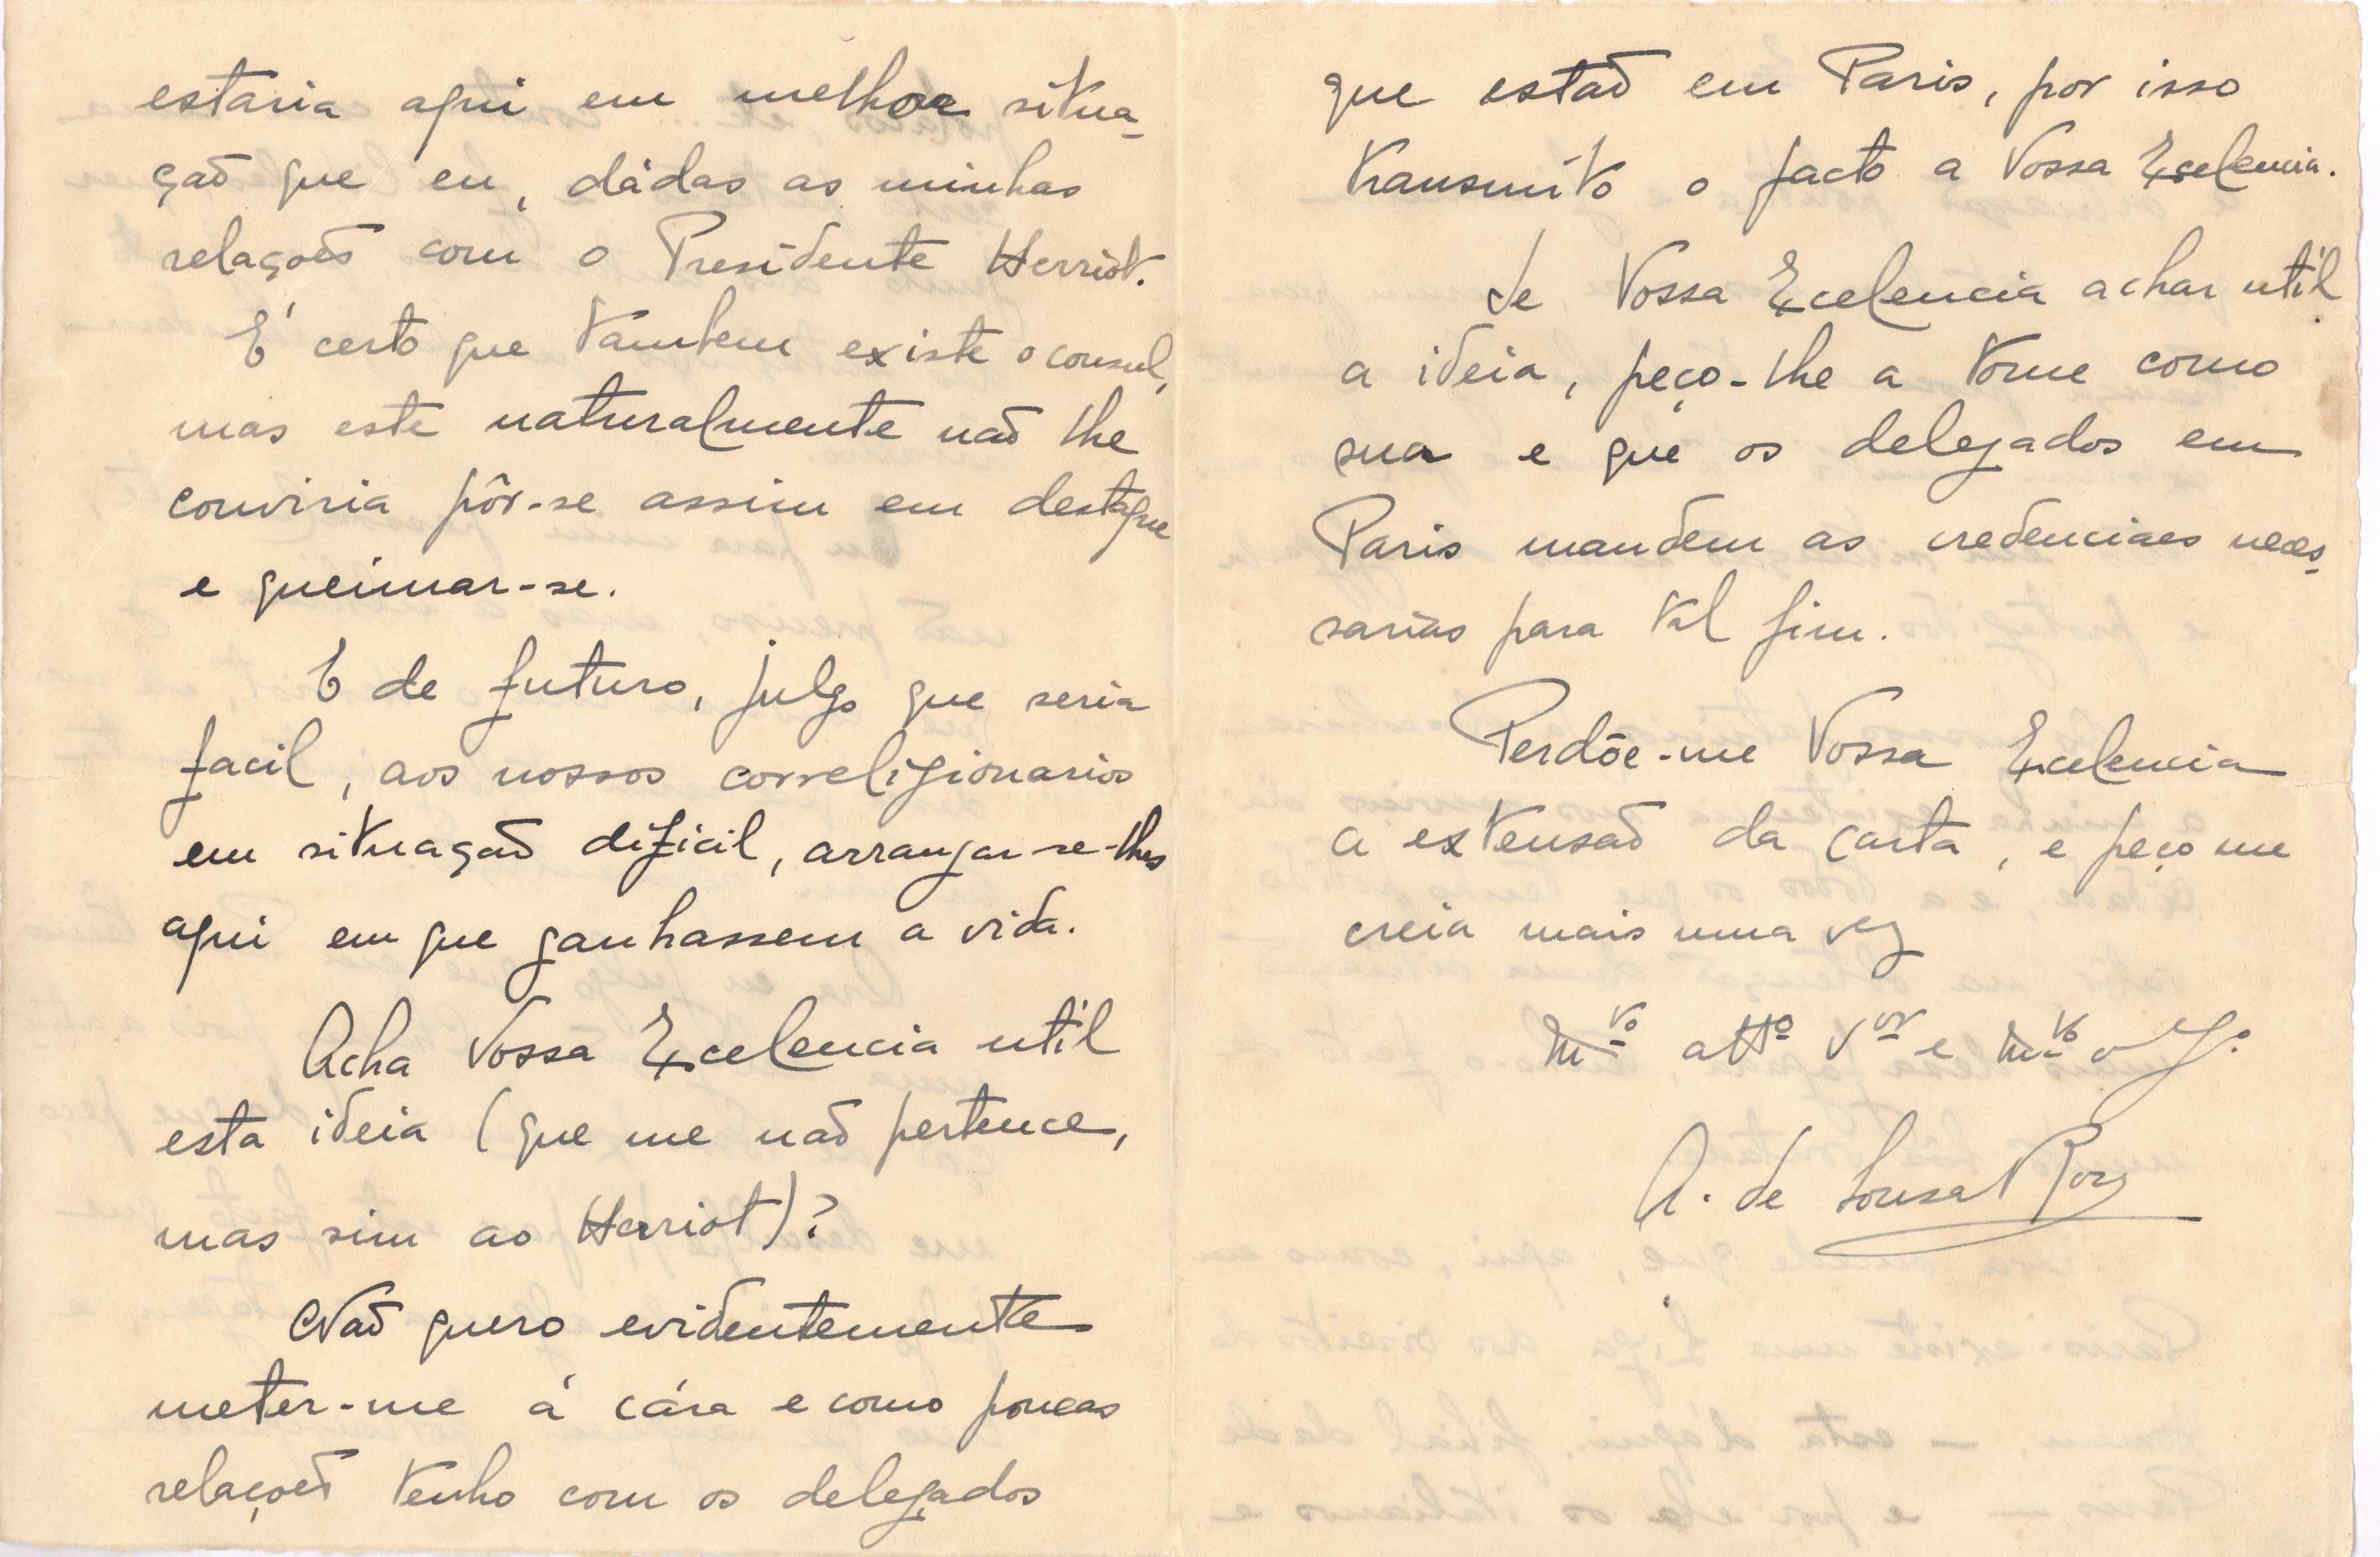 estaria aqui em melhor situa-
ção que eu, dádas as minhas
relações com o Presidente Herriot.
E' certo que tambem existe o consul,
mas este naturalmente não lhe
conviria pôr-se assim em destaque
e queimar-se.
E de futuro, julgo que seria
facil, aos nossos correligionarios
em situação dificil, arranjar-se-lhes
aqui em que ganhassem a vida.
Acha Vossa Excelencia util
esta ideia (que me não pertence,
mas sim ao Herriot)?
Não quero evidentemente
meter-me á cára e como poucas
relações tenho com os delegados
que estão em Paris, por isso
transmito o facto a Vossa Excelencia.
Se Vossa Excelencia achar util
a ideia, peço-lhe a tome como
sua e que os delegados em
Paris mandem as credenciaes neces-
sarias para tal fim.
Perdõe-me Vossa Excelencia
a extensão da carta, e peço me
creia mais uma vez
M.to att.o V.or e M.to
A. de Sousa Roza